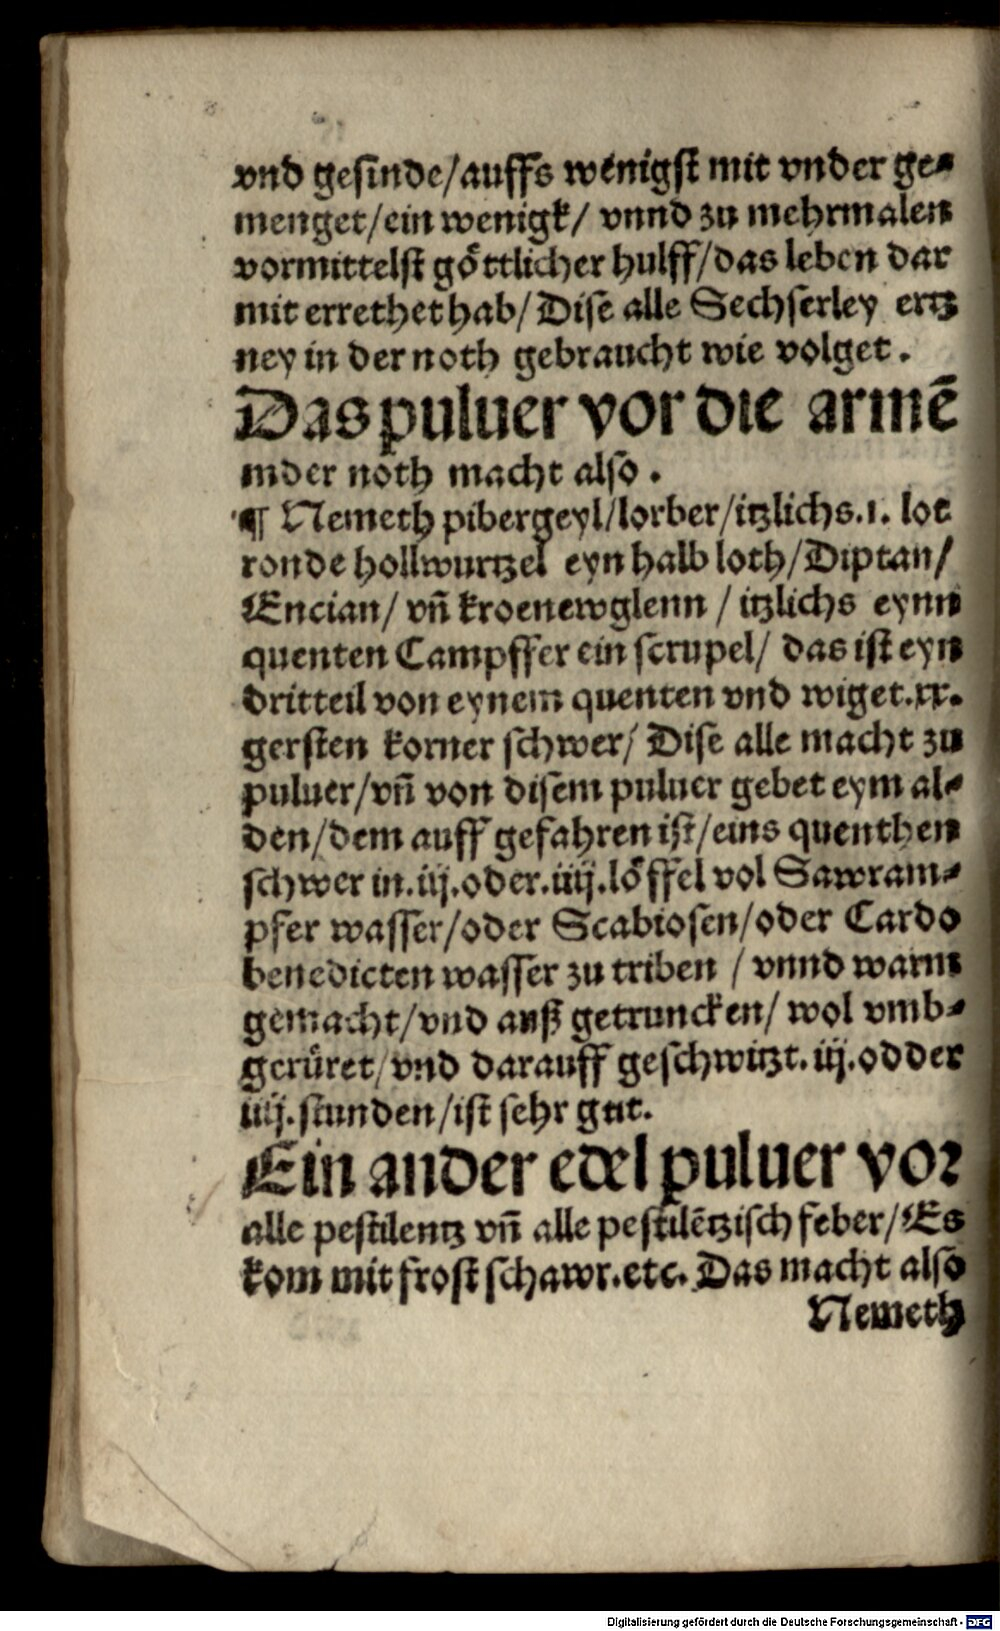 vnd gesinde/auffs wenigst mit vnder ge-
menget/ein wenigk/ vnnd zu mehrmalen
vormittelst göttlicher hulff/das leben dar
mit errethet hab/ Dise alle Sechserley ertz
ney in der noth gebraucht wie volget.
Das puluer vor die armē
inder noth macht also.
¶ Nemeth pibergeyl/lorber/itzlichs.1. lot
ronde hollwurtzel eyn halb loth/Diptan/
Encian/ vn̄ kroenewglenn / itzlichs eynn
quenten Campffer ein scrupel/ das ist eyn
dritteil von eynem quenten vnd wiget.xx.
gersten korner schwer/ Dise alle macht zu
puluer/vn̄ von disem puluer gebet eym al-
den/dem auff gefahren ist/eins quenthen
schwer in.iij.oder.iiij.löffel vol Sawram-
pfer wasser/oder Scabiosen/oder Cardo
benedicten wasser zu triben / vnnd warm
gemacht/vnd auß getruncken/ wol vmb-
gerüret/vnd darauff geschwitzt.iij.odder
iiij.stunden/ist sehr gut.
Ein ander edel puluer vor
alle pestilentz vn̄ alle pestilētzisch feber/Es
kom mit frost schawr.etc. Das macht also
Nemeth
Digitalisierung gefördert durch die Deutsche Forschungsgemeinschaft - DFG